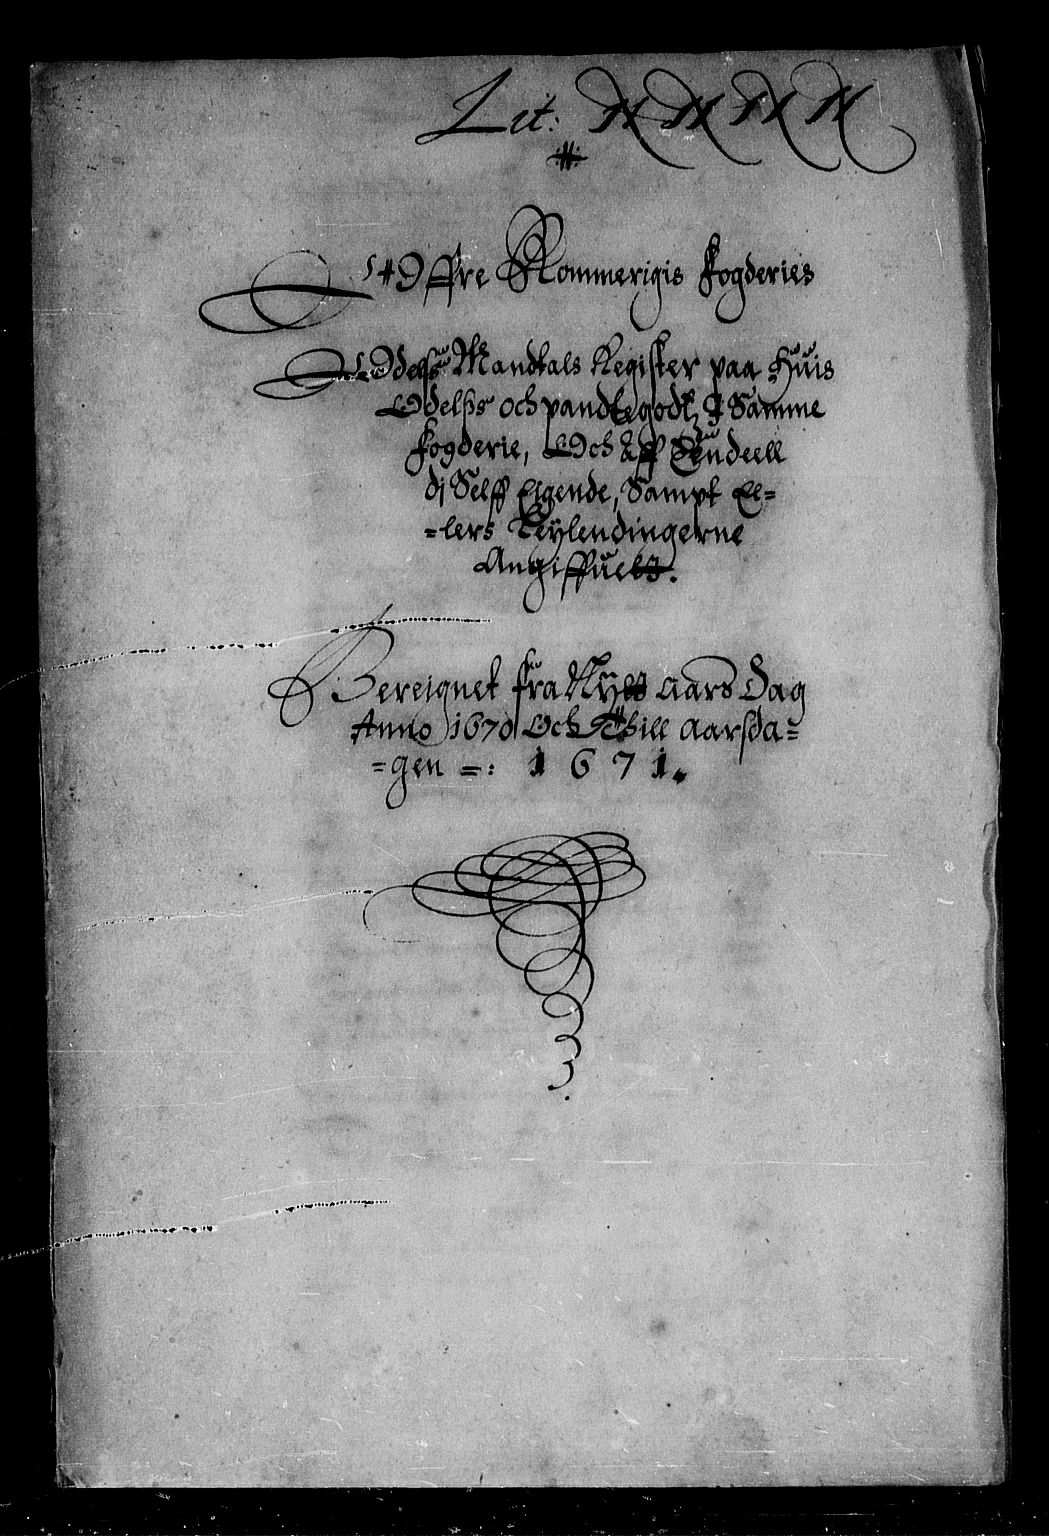 Lit: N N N N
Offre Rommerigis fogderies
Odels Mandtals Register paa huis
Odelss och pandtegodtz J Samme
fogderie, Och Aff Een deell
di Selff Eigende, Sampt El=
=lers Leylendingerne
Angiffuett.
Bereignet fra Nytt Aars Dag
Anno 1670 Och Thill Aarsda=
=gen =: 1671.